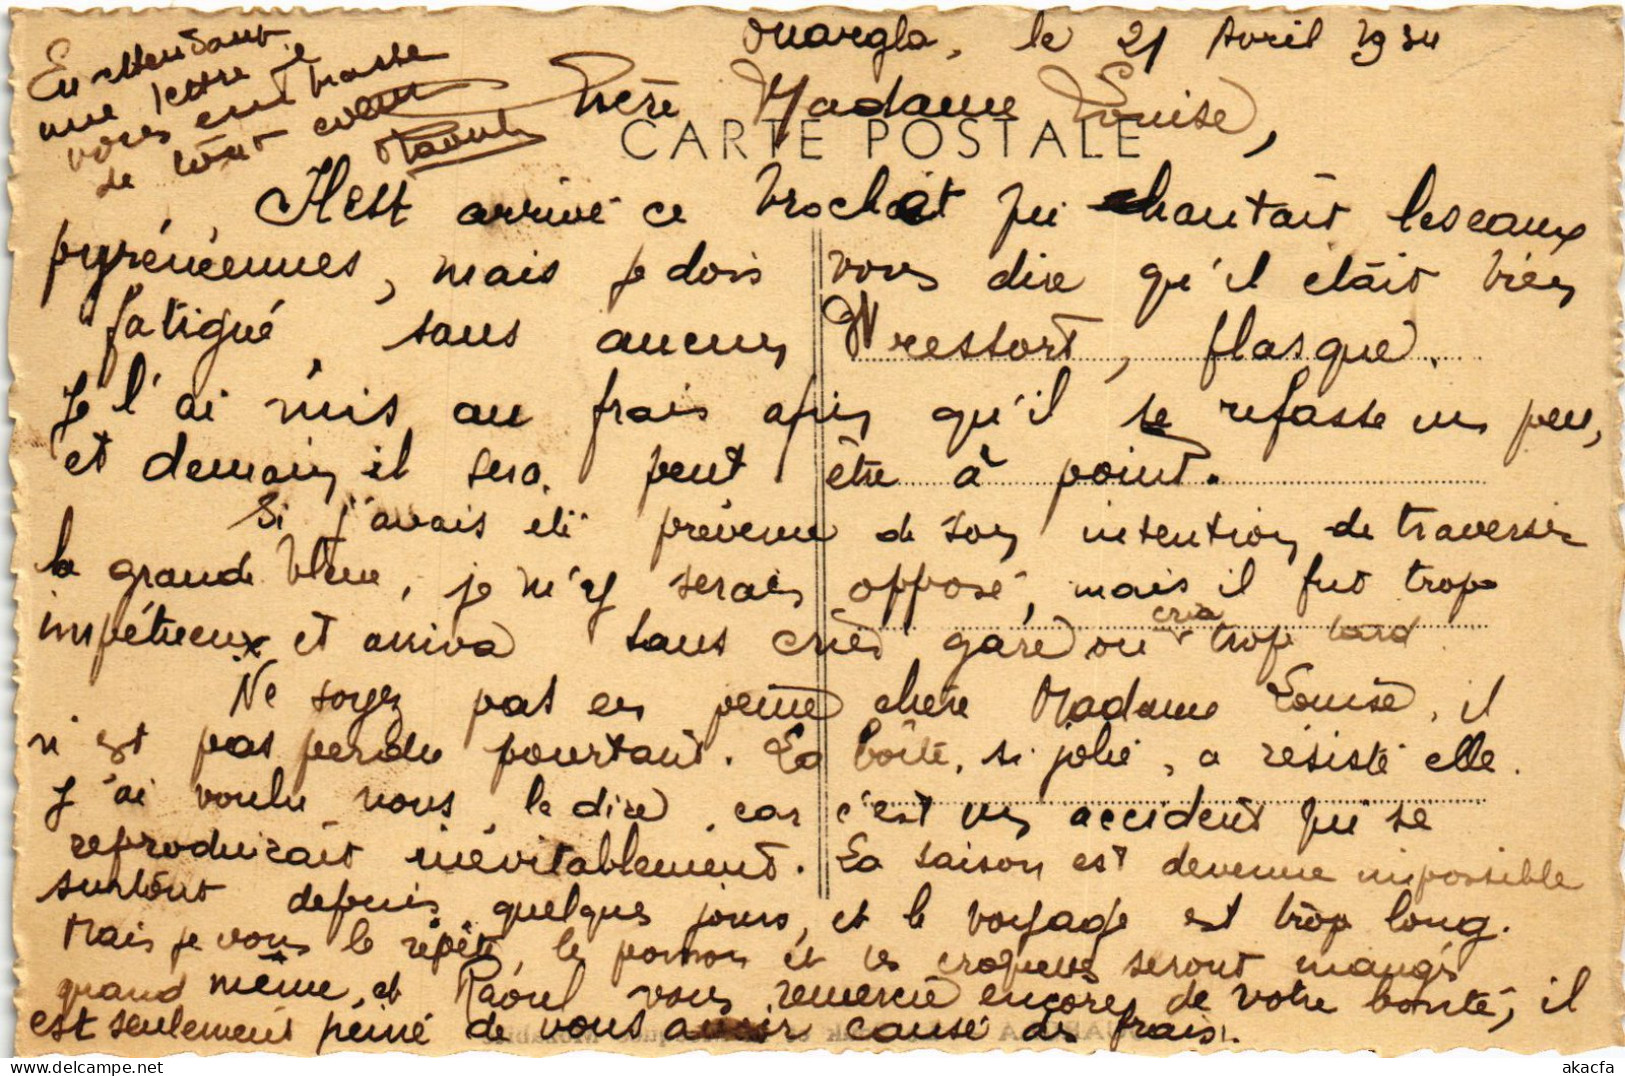 Ouargla, le 21 Avril 1934
Chère Madame Louise,
CARTE POSTALE
Il est arrivé ce brochet qui hantait les eaux
pyrénéennes, mais je dois vous dire qu'il était bien
fatigué, sans aucun ressort, flasque.
Je l'ai mis au frais afin qu'il se refasse un peu,
et demain il sera peut être à point.
Si j'avais été prévenu de son intention de traverser
la grande bleue, je m'y serais opposé, mais il fut trop
impétueux et arriva sans crier gare ou cria trop tard
Ne soyez pas en peine chère Madame Louise, il
n'est pas perdu pourtant. La boîte, si jolie, a résisté elle.
J'ai voulu vous le dire, car c'est un accident qui se
reproduirait inévitablement. La saison est devenue impossible
surtout depuis quelques jours, et le voyage est trop long.
Mais je vous le répète, le poisson et les croquettes seront mangés
quand même, et Raoul vous remercie encore de votre bonté, il
est seulement peiné de vous avoir causé des frais.
En attendant
une lettre je
vous embrasse
de tout cœur
Raoul
akacfa